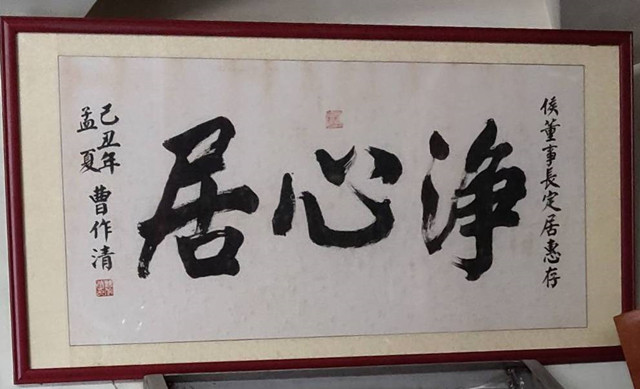 侯董事長定居惠存
淨心居
己丑年
孟夏 曹作清